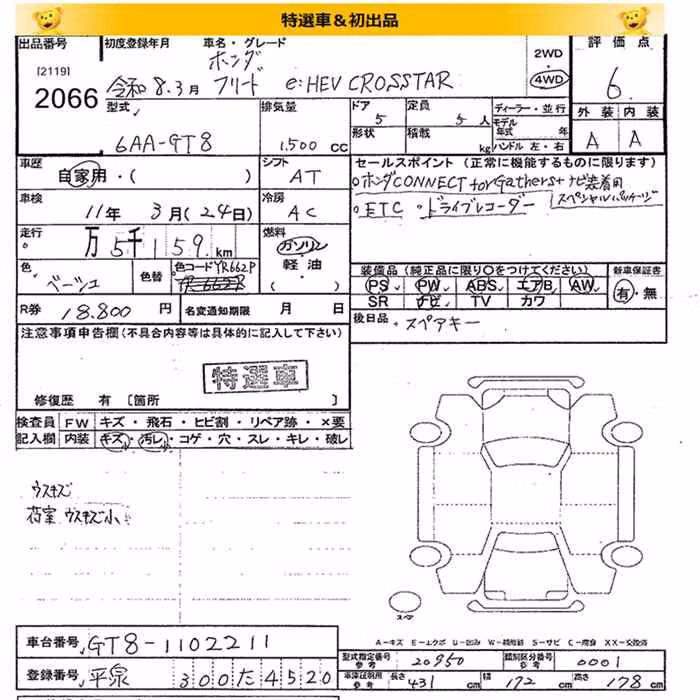 特選車&初出品
出品番号 初度登録年月 車名・グレード
ホンダ
[2119]
2066
令和 8.3月 フリード e:HEV CROSSTAR
2WD
4WD
評価点
6
外装 内装
A A
型式 排気量
6AA-GT8 1,500 CC
ドア 定員 ディーラー・並行
5 5人 モデル年式 年
形状 積載 kg ハンドル 左・右
車歴 自家用・( ) シフト AT
セールスポイント (正常に機能するものに限ります)
ホンダCONNECT for Gathers+ナビ装着用
スペシャルパッケージ
・ETC ・ドライブレコーダー
車検 11年 3月(24日) 冷房 AC
走行 万5千159km
燃料 ガソリン
軽油
( )
色 ベージュ 色替 色コードYR662P
装備品(純正品に限り○をつけてください) 新車保証書
PS PW ABS エアB AW 有・無
SR ナビ TV カワ
R券 18.800 円 名変通知期限 月 日
後日品 ・スペアキー
注意事項申告欄(不具合内容等は具体的に記入して下さい)
特選車
修復歴 有 [箇所 ]
検査員 FW キズ・飛石・ヒビ割・リペア跡・×要
記入欄 内装 キズ・汚レ・コゲ・穴・スレ・キレ・破レ
ウスキズ
荷室 ウスキズ小
スペア
A-キズ E-エクボ U-凹み W-補修跡 S-サビ C-腐食 XX-交換済
車台番号 GT8-1102211
型式指定番号 参考 20950 類別区分番号 参考 0001
登録番号 平泉 300 た 4520
車庫証明用 参考 長さ 431 cm 幅 172 cm 高さ 178 cm